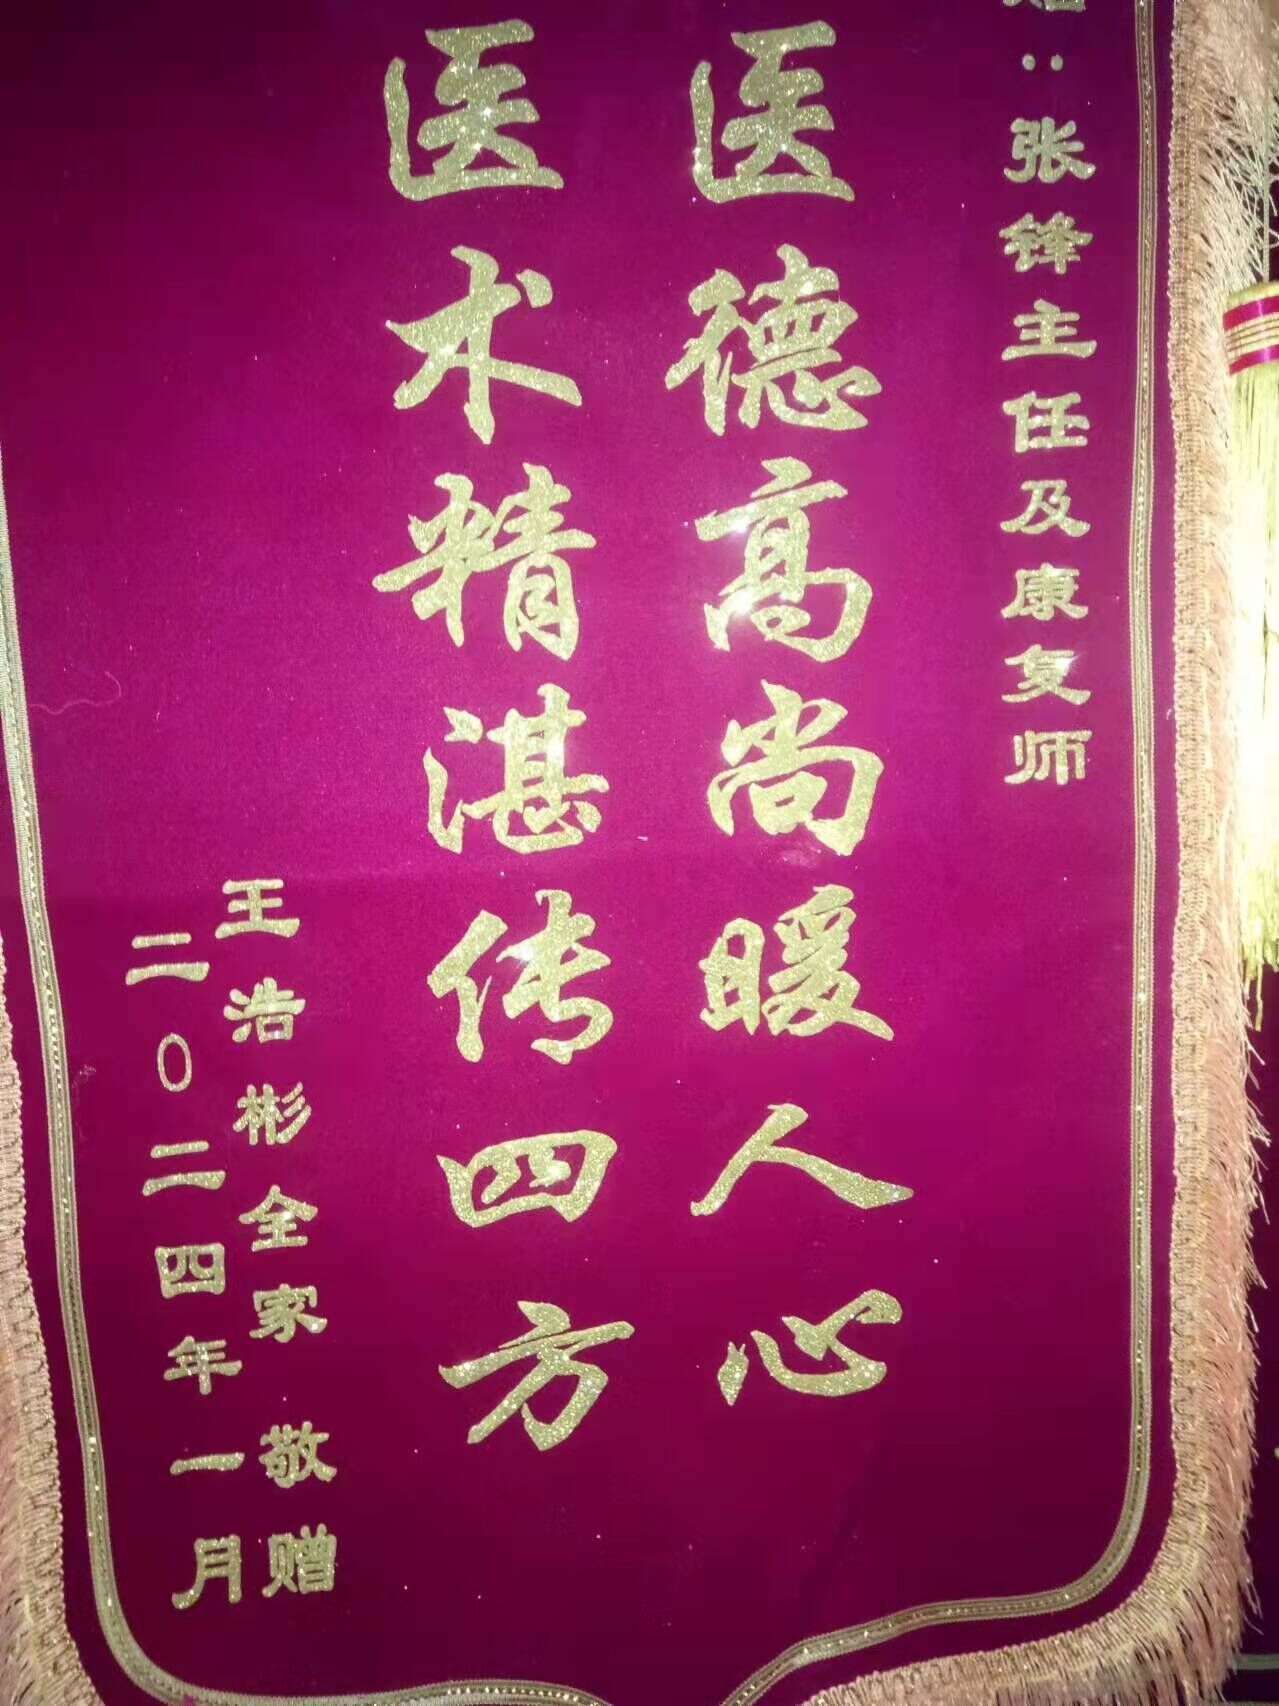 赠：张锋主任及康复师
医德高尚暖人心
医术精湛传四方
王浩彬全家 敬赠
二0二四年一月